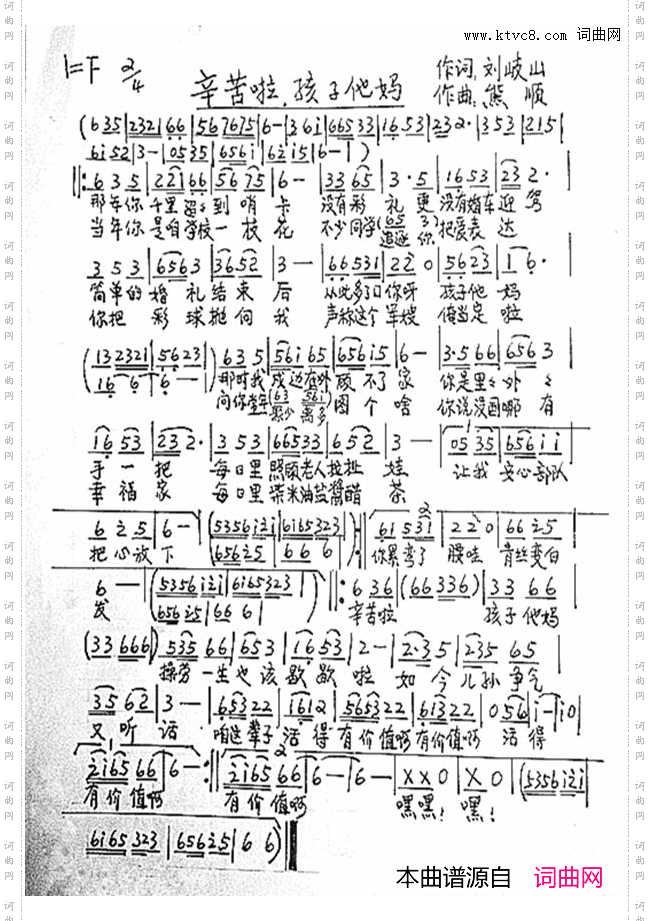 www.ktvc8.com 词曲网
1=F 2/4 辛苦啦,孩子他妈
作词 刘岐山
作曲 熊 顺
(6 35|232166|567675|6-|36i|66533|1653|232·|353|215|
6i52|3-|0535|656i|62i5|6-|)
‖:6 3 5|22166|5675|6-|3365|3·5|1653|232·|
那年你 千里迢迢到哨卡 没有彩礼更没有婚车迎驾
当年你 是咱学校一枝花 不少同学(追逐你)把爱表达
3 5 3|6563|3652|3-|66531|220|5623|16·|
简单的婚礼结束后 从此多了口你呀 孩子他妈
你把彩球抛向我 声称这个军嫂俺当定啦
(132321|5623|)635|56i65|656i5|6-|3·566|6563|
16 6|6-
那时我戍边在外顾不了家 你是里里外外
问你当年(聚少离多)图个啥 你说没图哪有
1653|232·|353|66533|652|3-|0535|656ii|
手一把 每日里照顾老人拉扯娃 让我安心部队
幸福家 每日里柴米油盐酱醋茶
6 2 5|6-|(5356i2i|6i65323|
656i25|666|):‖61531|220|6625|
把心放下 你累弯了腰哇 青丝变白
6-|(5356i2i|6i65323|
656i25|666|)‖:636|(66336)|3366|
发 辛苦啦 孩子他妈
(33666)|53566|653|1653|2-|2·35|23565|
操劳一生也该歇歇啦 如今儿孙争气
3562|3-|65322|1612|565322|61322|056|i-|i0|
又听话 咱这辈子活得有价值啊有价值啊 活得
2i6566|6-:‖2i6566|6-|6-|XX0|X0|(5356i2i|
有价值啊 有价值啊 嘿嘿! 嘿!
6i65323|656i25|66)‖
本曲谱源自 词曲网